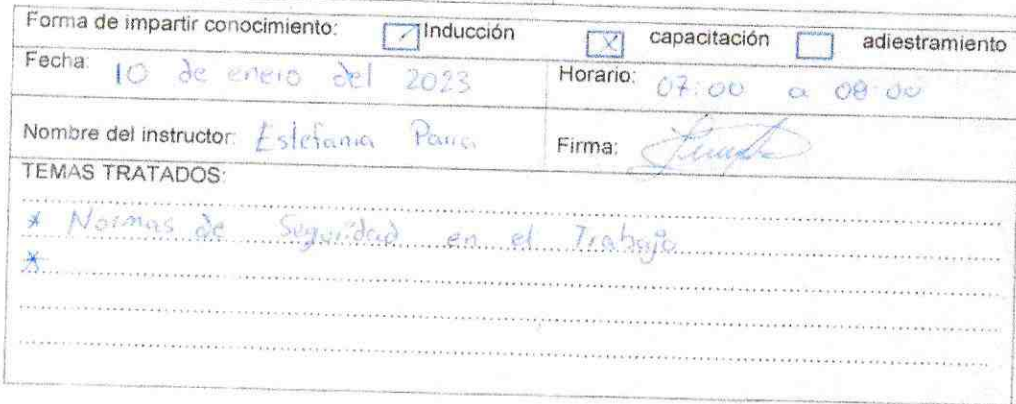 Forma de impartir conocimiento: Inducción X capacitación adiestramiento
Fecha: 10 de enero del 2023 Horario: 07:00 a 08:00
Nombre del instructor: Estefania Firma:
TEMAS TRATADOS:
* Normas de Seguridad en el Trabajo
*